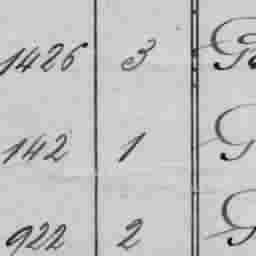 1426 3
142 1
922 2